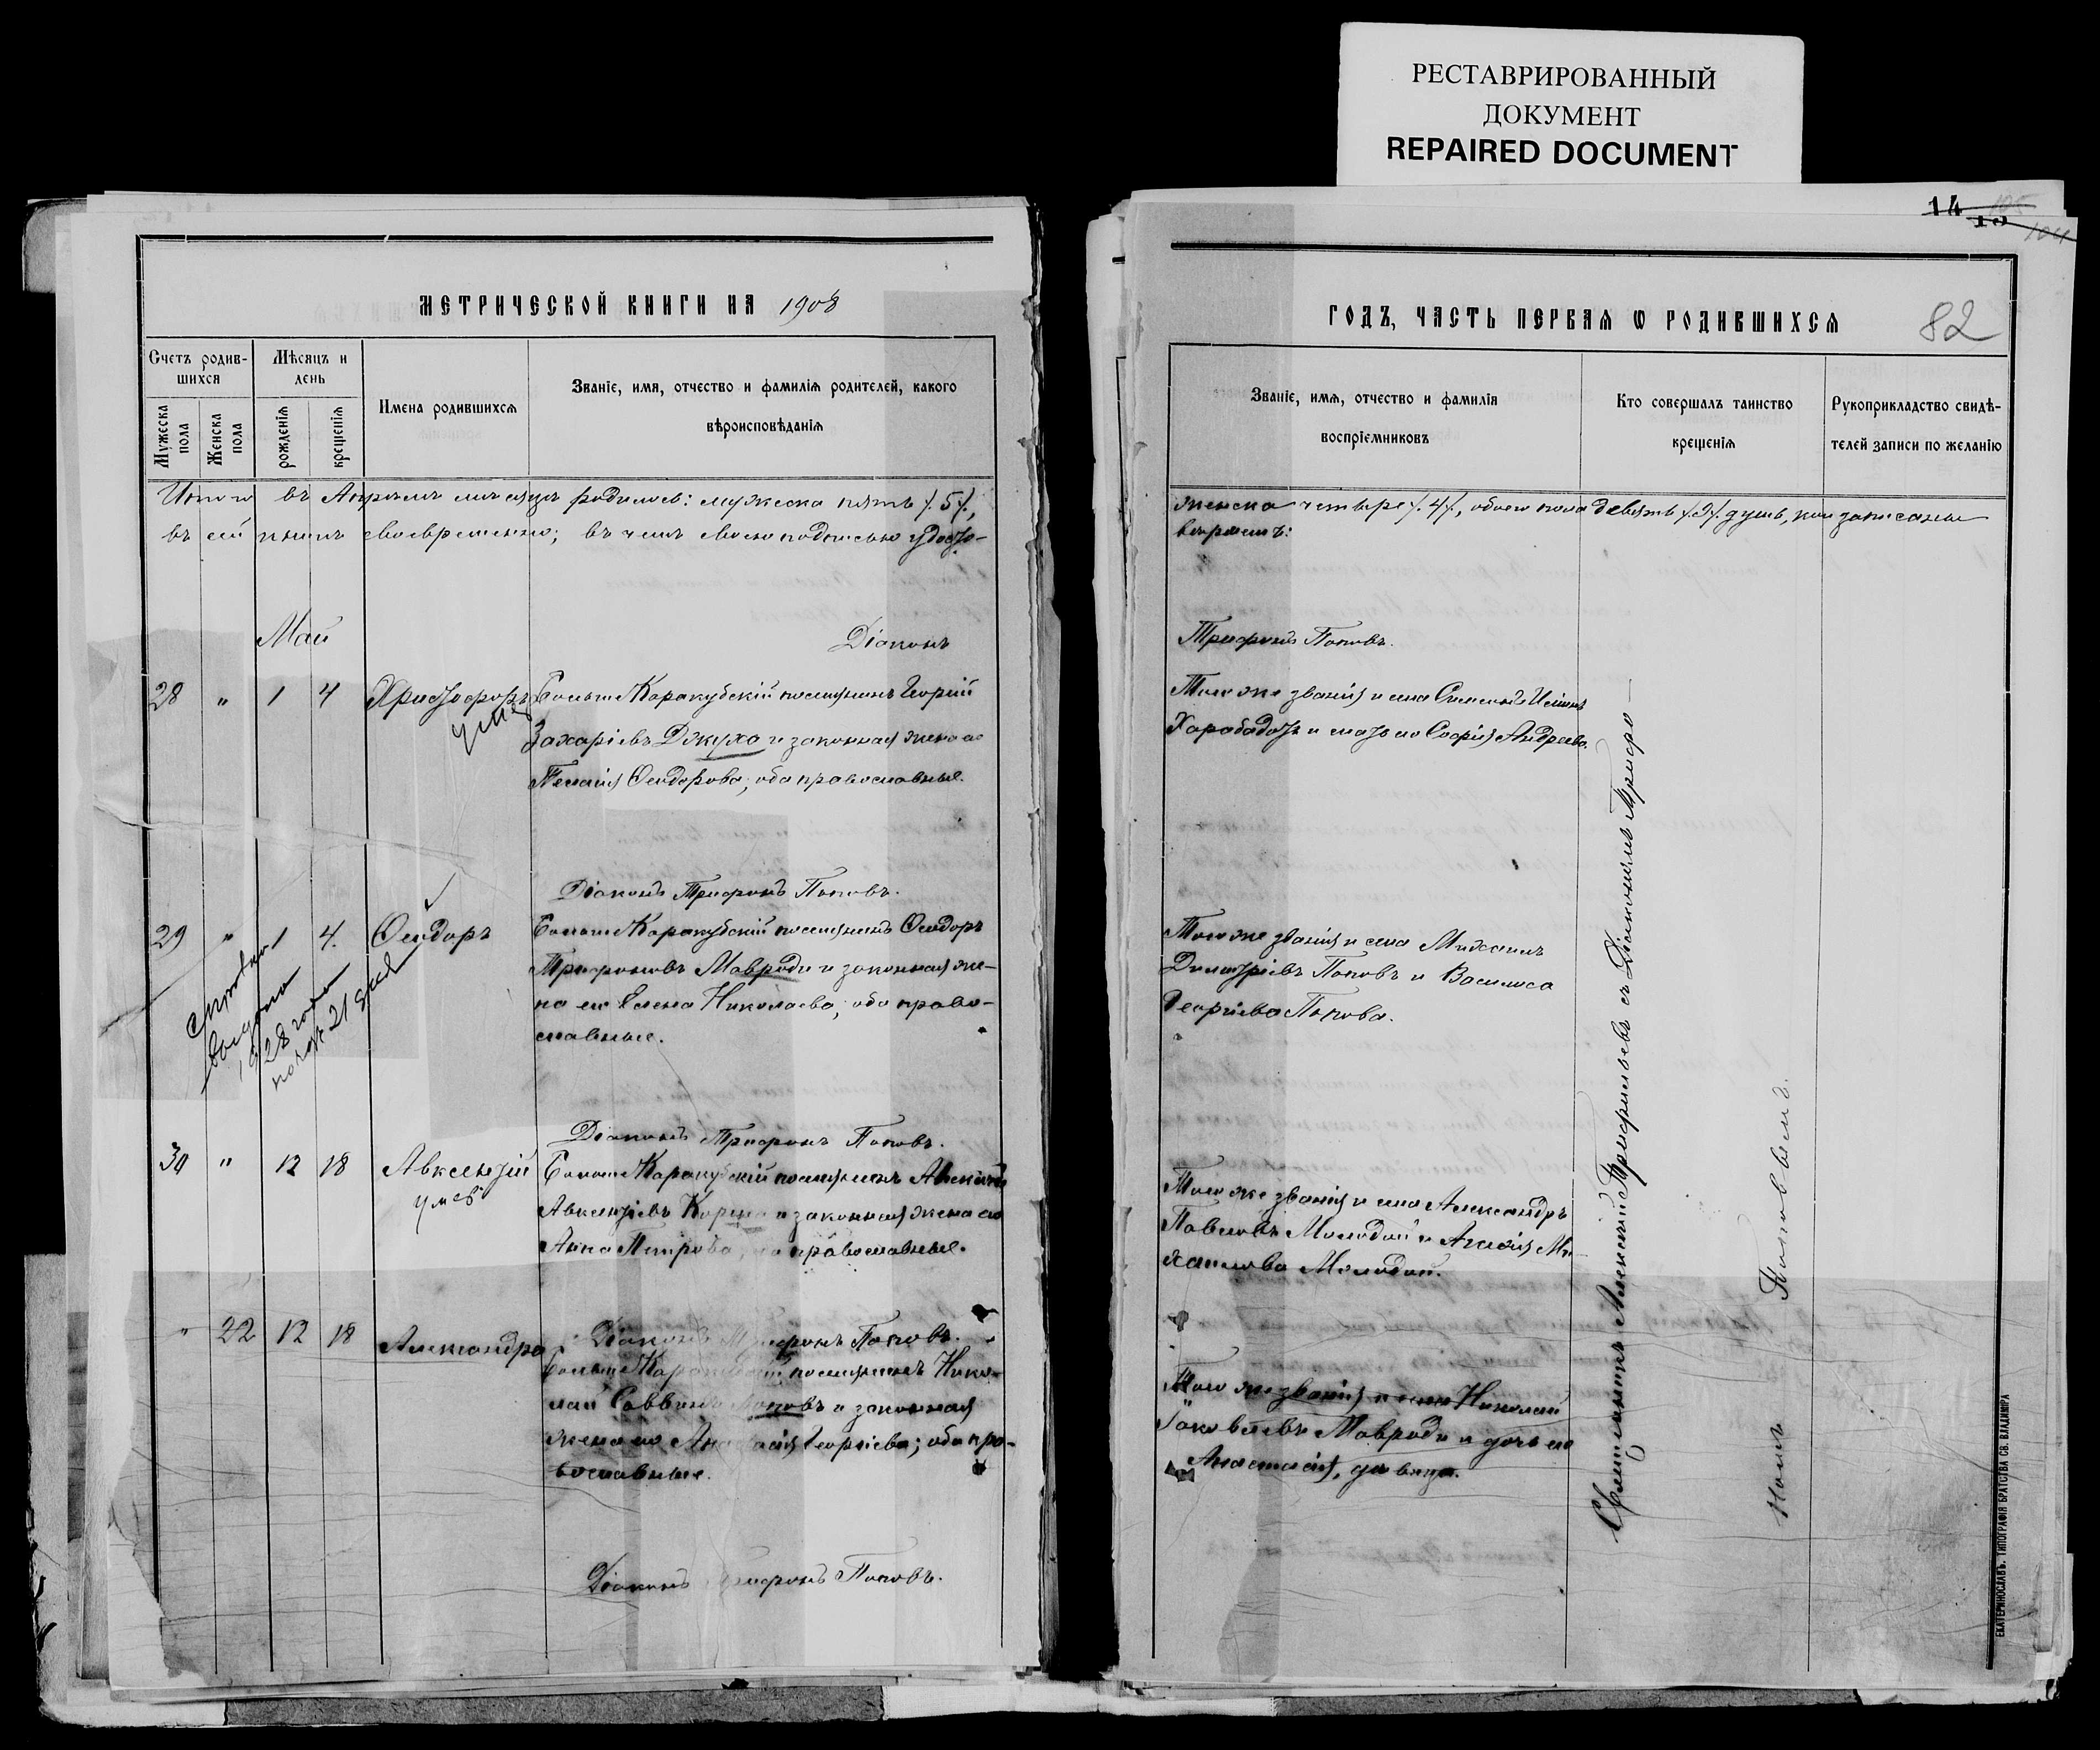 РЕСТАВРИРОВАННЫЙ
ДОКУМЕНТ
REPAIRED DOCUMENT
МЕТРИЧЕСКОЙ КНИГИ НА 1908
Счетъ родив-
шихся
Мѣсяцъ и
день
Мужеска
пола
Женска
пола
рожденія
крещенія
Имена родившихся
Званіе, имя, отчество и фамилія родителей, какого
вѣроисповѣданія
Итого въ Апрѣлѣ мѣсяцѣ родилось: мужеска пять /.5/.,
въ сей книгѣ своевременно; въ чемъ своею подписью удосто-
Май
Діаконъ
28 " 1 4 Христофоръ
умеръ
Больше Каракубскій поселянинъ Георгій
Захаріевъ Джуха и законная жена его
Пелагія Ѳеодорова; оба православные.
Діаконъ Трифонъ Поповъ.
29 " 1 4. Ѳеодоръ
Больше Каракубскій поселянинъ Ѳеодоръ
Трифоновъ Мавроди и законная же-
на его Елена Николаева; оба право-
славные.
справка
выдана
1928 года
21 дня
Діаконъ Трифонъ Поповъ.
30 " 12 18 Авксентій
умеръ
Больше Каракубскій поселянинъ Алексѣй
Авксентіевъ и законная жена его
Анна Петрова; оба православные.
Діаконъ Трифонъ Поповъ.
" 22 12 18 Александра
Больше Каракубскій поселянинъ Нико-
лай Саввинъ Поповъ и законная
жена его Анастасія Георгіева; оба пра-
вославные.
Діаконъ Трифонъ Поповъ.
14
15
105
104
ГОДЪ, ЧАСТЬ ПЕРВАЯ Ѡ РОДИВШИХСЯ
82
Званіе, имя, отчество и фамилія
воспріемниковъ
Кто совершалъ таинство
крещенія
Рукоприкладство свидѣ-
телей записи по желанію
женска четыре /.4/., обоего пола девять /.9/. душъ, кои записаны
вѣряемъ:
Трифонъ Поповъ.
Того же званія и села Симеонъ
Харабадотъ и мать его Софія Андреева.
Того же званія и села Михаилъ
Димитріевъ Поповъ и Василиса
Георгіева Попова.
Того же званія и села Александръ
Павловъ Молодой и Агафія Ми-
хаилова Молодой.
Того же званія и села Николай
Іаковлевъ Мавроди и дочь его
Анастасія, дѣвица.
Священникъ Алексій Трифильевъ съ Діакономъ Трифо-
номъ Поповвымъ.
ЕКАТЕРИНОСЛАВЪ. ТИПОГРАФІЯ БРАТСТВА СВ. ВЛАДИМІРА